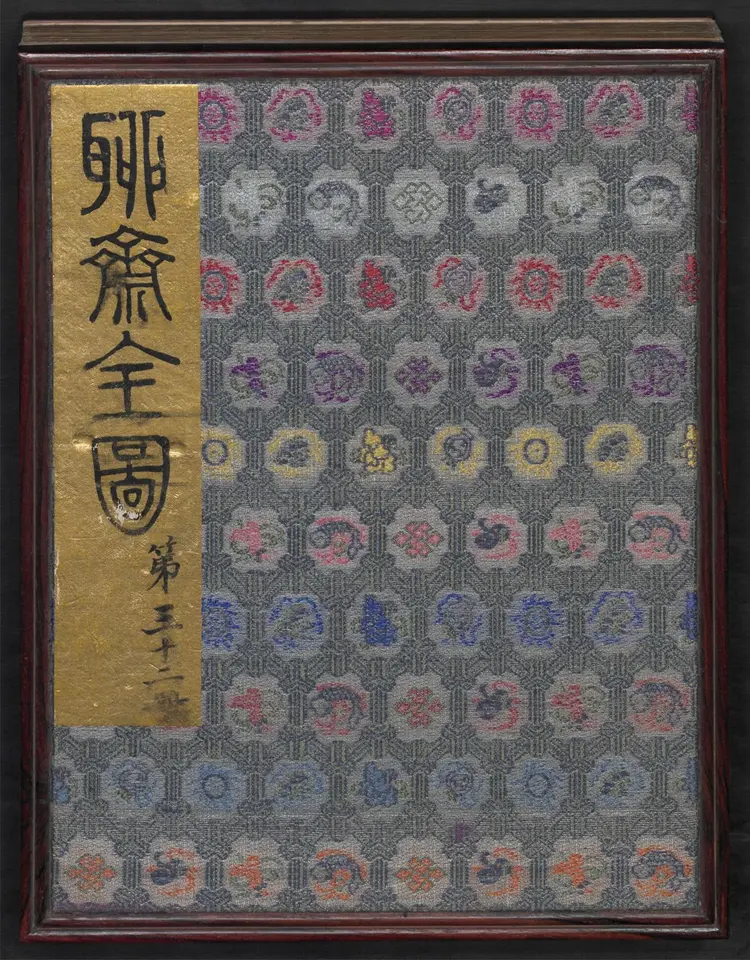 聊齋全圖
第三十二冊